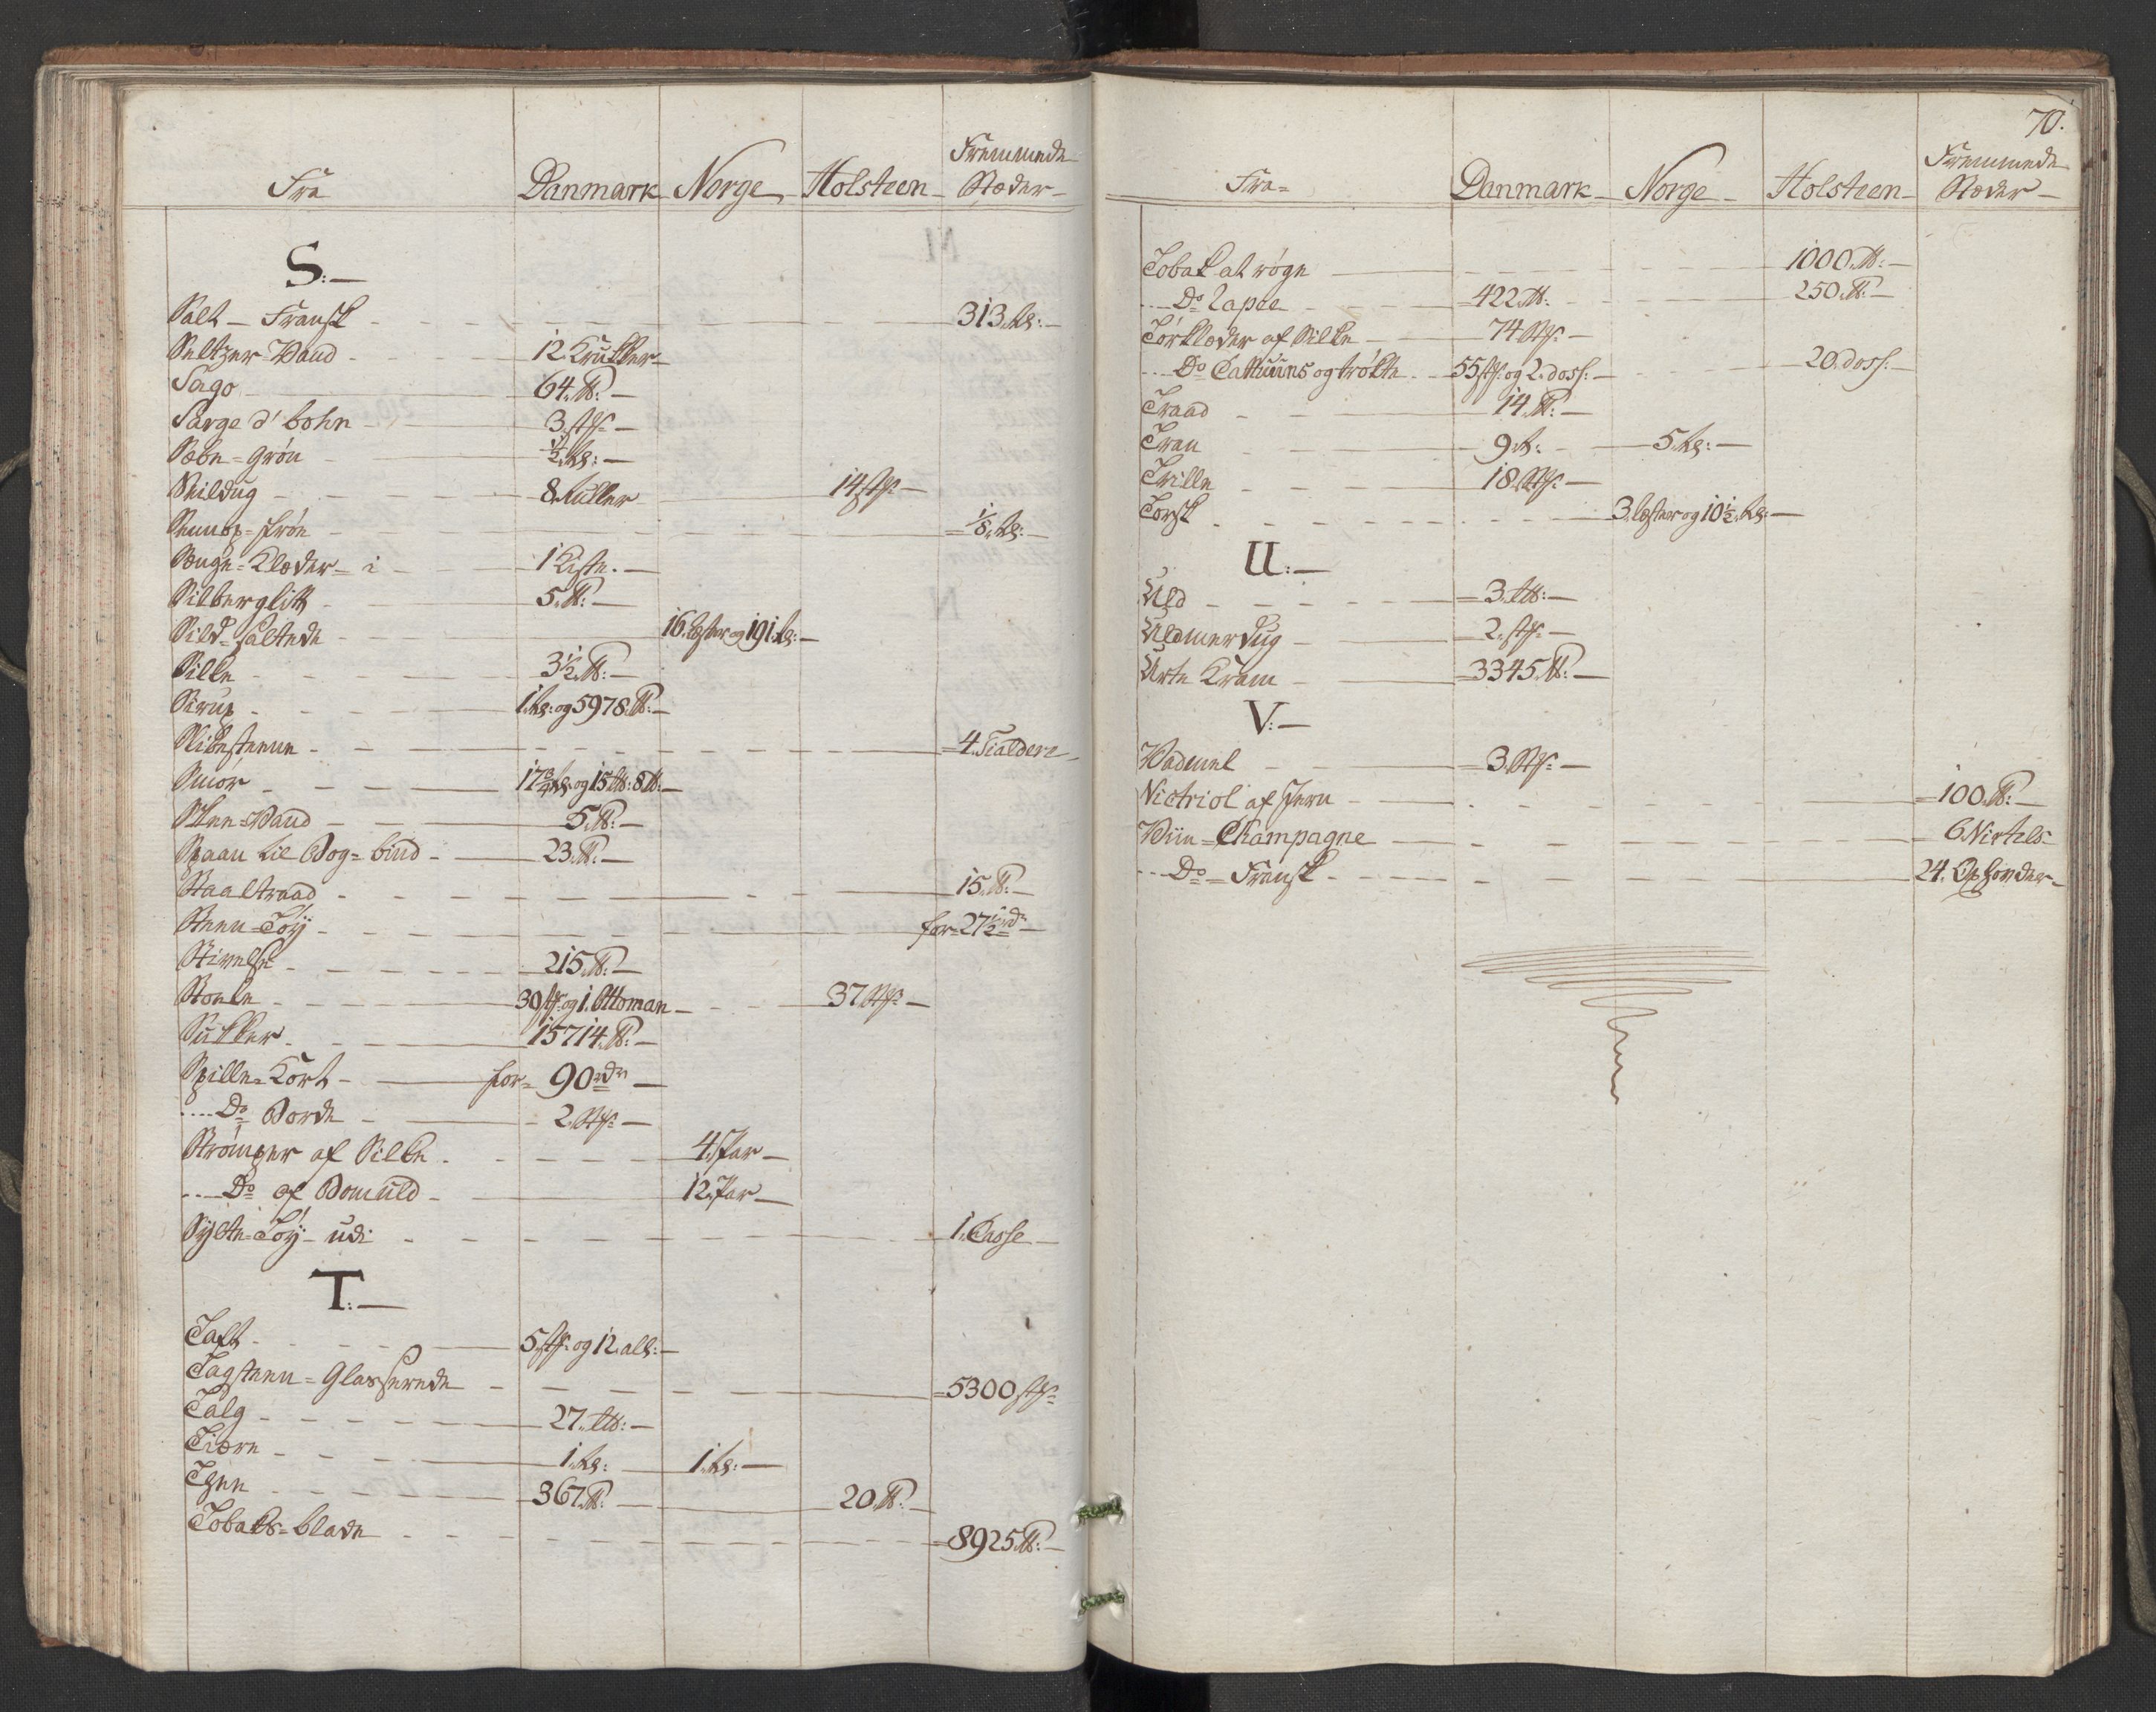 Fra Danmark Norge Holsteen Fremmede Stæder
S:
Salt - Fransk 313 td:
Seltzer-Vand 12 Krukker
Sago 64 ℔:
Sarge d' bohn 3 stk:
Sæbe-grøn ½ td:
Seildug 8 Ruller 14 stk:
Sennop-frøe 1/8 td:
Senge-Klæder i 1 Kiste
Silberglitt 5 ℔:
Sild-saltede 16 Læster og 191 td:
Silke 3½ ℔:
Sirup 1 td: og 5978 ℔:
Slibesteene 4 Tialdere
Smør 17¾ td: og 15 L℔: 8 ℔:
Slee-Vand 5 ℔:
Spaan til Bog-bind 23 ℔:
Staaltraad 15 ℔:
Steen-Tøÿ for 27½ rdr
Stivelse 215 ℔:
Stoele 30 stk: og 1 Ottoman 37 Stk:
Sukker 15714 ℔:
Spille-Kort for 90 rdr
Do Borde 2 Stk:
Strømper af Silke 4 Par
Do af Bomuld 12 Par
Sÿlte-Tøÿ udi 1 Casse
T:
Taft 5 stk: og 12 all:
Tagsteen-Glasserede 5300 stk:
Talg 27 L℔:
Tiære 1 td: 1 td:
Thee 367 ℔: 20 ℔:
Tobaks-blade 8925 ℔:
70.
Fra Danmark Norge Holsteen Fremmede Stæder
Tobak at røge 1000 ℔:
Do Rapee 422 ℔: 250 ℔:
Tørklæder af Silke 74 Stk:
Do Cattuuns og trÿkte 55 stk: og 2 doss: 20 doss:
Traad 14 ℔:
Tran 9 t: 5 td:
Trille 18 Stk:
Torsk 3 Læster og 10½ td:
U:
Uld 3 L℔:
Uldmerdug 2 stk:
Urte Kram 3345 ℔:
V:
Vadmel 3 Stk:
Victriol af Jern 100 ℔:
Viin-Champagne 6 Virtels
Do Fransk 24 Oxhovder